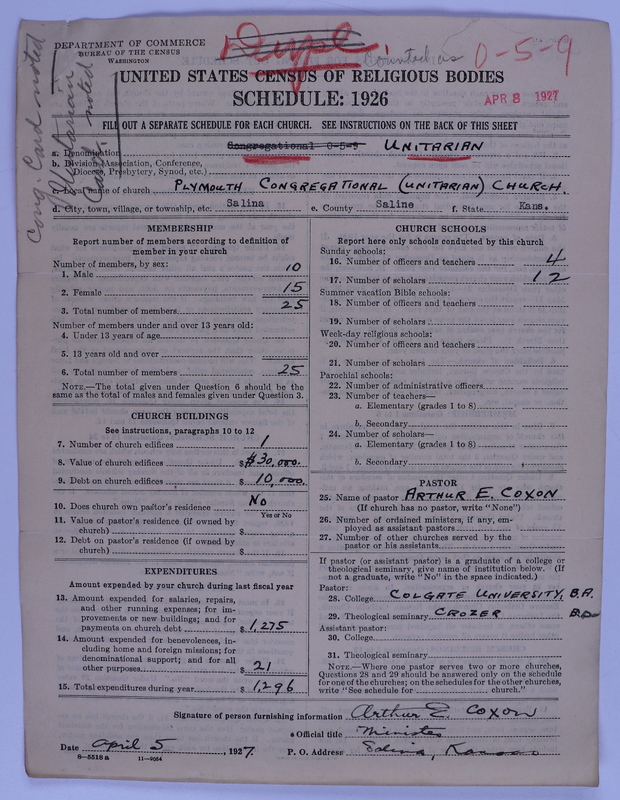 DEPARTMENT OF COMMERCE
BUREAU OF THE CENSUS
WASHINGTON
Dupl.
Counted as
0-5-9
Cong. Card noted
Unitarian
Card noted
UNITED STATES CENSUS OF RELIGIOUS BODIES
SCHEDULE: 1926
APR 8 1927
FILL OUT A SEPARATE SCHEDULE FOR EACH CHURCH. SEE INSTRUCTIONS ON THE BACK OF THIS SHEET
a. Denomination Congregational 0-5-9 UNITARIAN
b. Division (Association, Conference, Diocese, Presbytery, Synod, etc.)
c. Local name of church PLYMOUTH CONGREGATIONAL (UNITARIAN) CHURCH.
d. City, town, village, or township, etc. Salina e. County Saline f. State Kans.
MEMBERSHIP
Report number of members according to definition of
member in your church
Number of members, by sex:
1. Male 10
2. Female 15
3. Total number of members 25
Number of members under and over 13 years old:
4. Under 13 years of age
5. 13 years old and over
6. Total number of members 25
NOTE.—The total given under Question 6 should be the
same as the total of males and females given under Question 3.
CHURCH BUILDINGS
See instructions, paragraphs 10 to 12
7. Number of church edifices 1
8. Value of church edifices $30,000.
9. Debt on church edifices $10,000.
10. Does church own pastor's residence No
Yes or No
11. Value of pastor's residence (if owned by
church) $
12. Debt on pastor's residence (if owned by
church) $
EXPENDITURES
Amount expended by your church during last fiscal year
13. Amount expended for salaries, repairs,
and other running expenses; for im-
provements or new buildings; and for
payments on church debt $1,275
14. Amount expended for benevolences, in-
cluding home and foreign missions; for
denominational support; and for all
other purposes $21
15. Total expenditures during year $1,296
CHURCH SCHOOLS
Report here only schools conducted by this church
Sunday schools:
16. Number of officers and teachers 4
17. Number of scholars 12
Summer vacation Bible schools:
18. Number of officers and teachers
19. Number of scholars
Week-day religious schools:
20. Number of officers and teachers
21. Number of scholars
Parochial schools:
22. Number of administrative officers
23. Number of teachers—
a. Elementary (grades 1 to 8)
b. Secondary
24. Number of scholars—
a. Elementary (grades 1 to 8)
b. Secondary
PASTOR
25. Name of pastor ARTHUR E. COXON
(If church has no pastor, write "None")
26. Number of ordained ministers, if any, em-
ployed as assistant pastors
27. Number of other churches served by the
pastor or his assistants
If pastor (or assistant pastor) is a graduate of a college or
theological seminary, give name of institution below. (If
not a graduate, write "No" in the space indicated.)
Pastor:
28. College COLGATE UNIVERSITY, B.A.
29. Theological seminary CROZER B.D.
Assistant pastor:
30. College
31. Theological seminary
NOTE.—Where one pastor serves two or more churches,
Questions 28 and 29 should be answered only on the schedule
for one of the churches; on the schedules for the other churches,
write "See schedule for church."
Signature of person furnishing information Arthur E. Coxon
* Official title Minister
Date April 5, 1927. P. O. Address Salina, Kansas
8—5518 a 11—9054